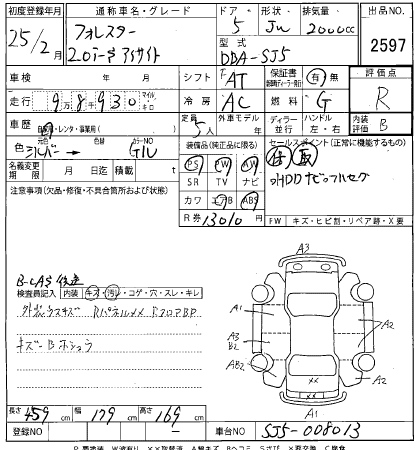 初度登録年月 通称車名・グレード ドア 形状 排気量 出品NO
25/2月 フォレスター 2.0i-S アイサイト 5 2000cc 2597
型式 DBA-SJ5
車検 年 月 シフト FAT 保証書 有 無 評価点 R
走行 9万8千930 マイル キロ 冷房 AC 燃料 G
車歴 自家用・レンタ・事業用 定員 5人 外車モデル 年 ディーラー 並行 ハンドル 左・右 内装評価 B
色 元色 シルバー 色替 カラーNO G1U 装備品(純正品に限る) セールスポイント(正常に機能するもの)
名義変更期限 月 日迄 積載 t PS PW AW
SR TV ナビ
注意事項(欠品・修復・不具合箇所および状態) カワ エアB ABS
純HDDナビ フルセグ
R券 13010円 FW キズ・ヒビ割・リペア跡・X要
B-CAS 欠品
検査員記入 内装 キズ・汚レ・コゲ・穴・スレ・キレ
外装 ガラスキズ
キズ-Bホシュウ
A3
A1
A3
B2
AB2
A2
A2
XX
A1
長さ 459cm 幅 179cm 高さ 169cm
登録NO 車台NO SJ5-008013